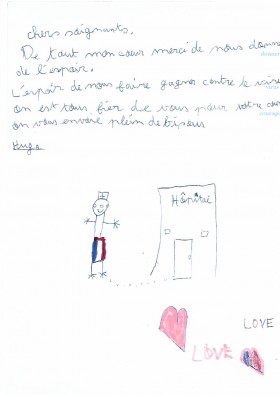 chers soignants,
De tout mon coeur merci de nous donne
de l'espoir.
L'espoir de nous faire gagner contre le virus
on est tous fier de vous pour votre
on vous envoie plein de bisous
Hugo
Hôpital
LOVE
LOVE